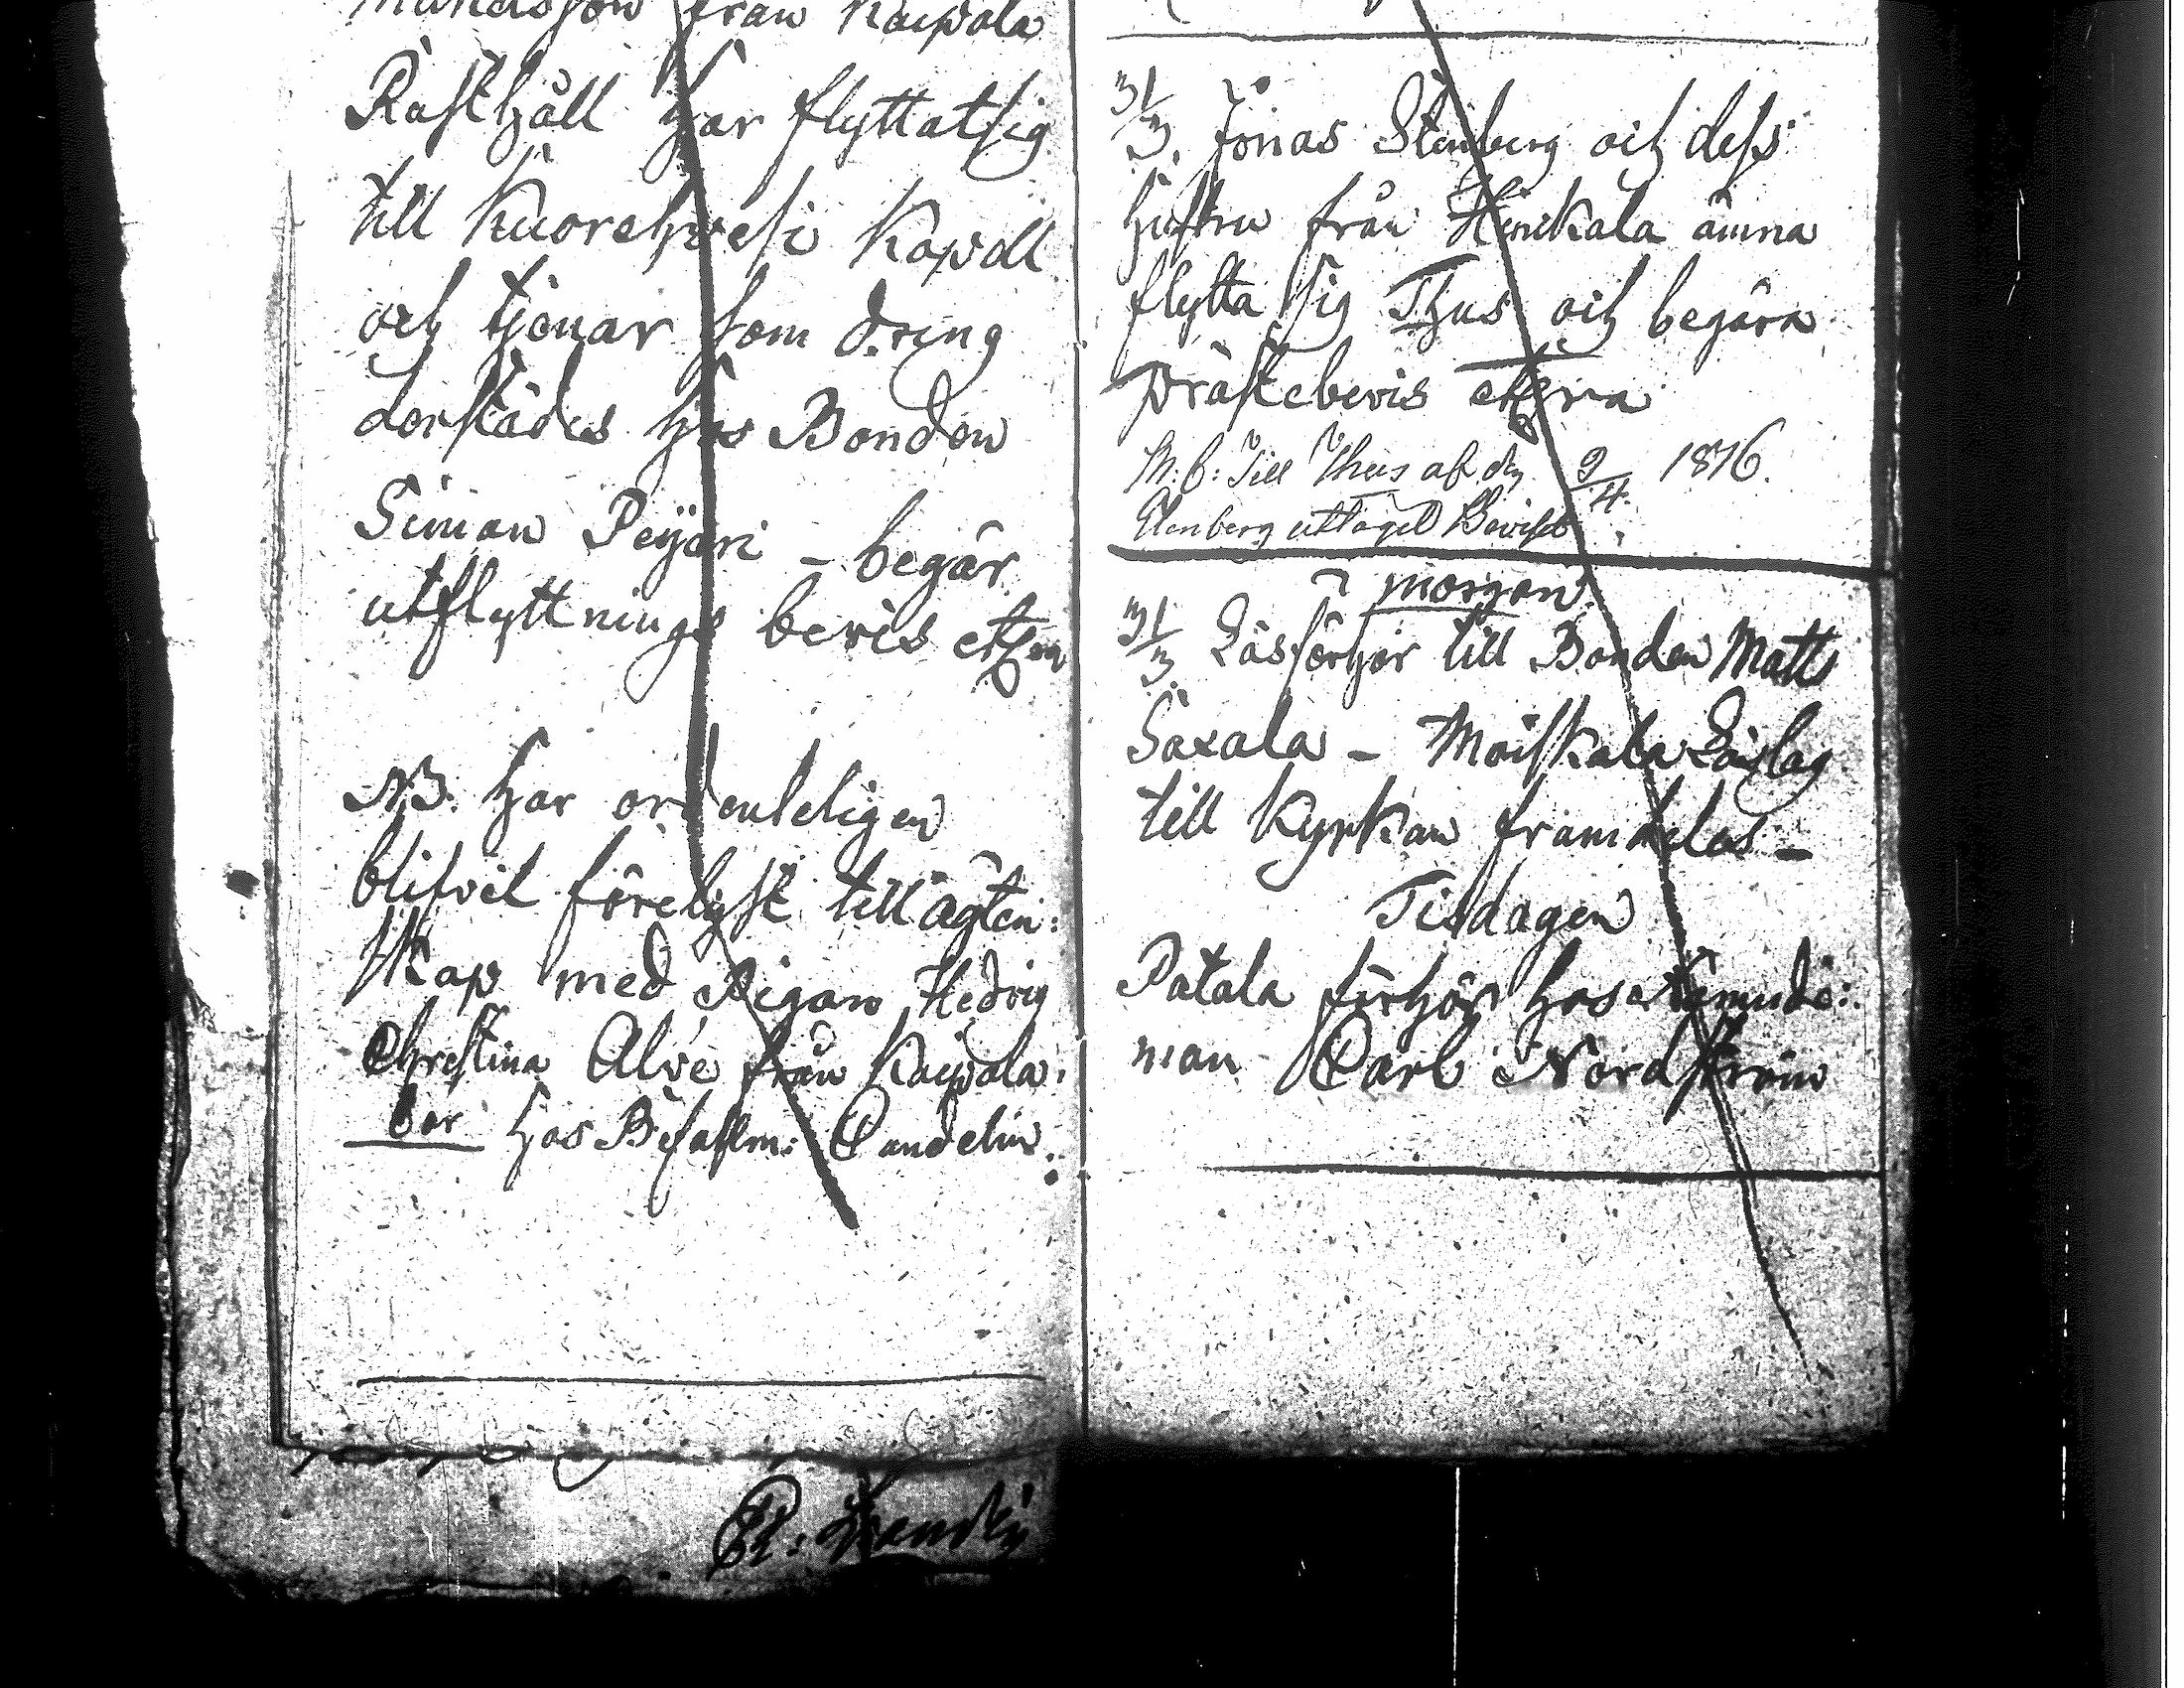 från Kaipola
Rusthåll har flyttat sig
till Kuorehvesi Kapell
och tjenar som dreng
derstädes hos Bonden
Simon Peÿari – begär
utflyttnings bevis
NB. har ordenteligen
blifvit förelyst till ägten:
skap med Pigan Hedvig
Christina Alvé från Kaipola.
bor hos Befallm: Candelin.
31/3. Jonas Stenberg och dess
hustru från Heinikala ämna
flytta sig Thus och begära
prästebevis
M. b: Till Thus af d. 9/4. 1876.
uttagit Beviset
morgon
31/3. Läsförhör till Bonden Matts
Saxala – Moiskala Läslag
till Kyrkan framdeles –
Tisdagen
Patala förhör hos Nämnde:
man Carl Nordström